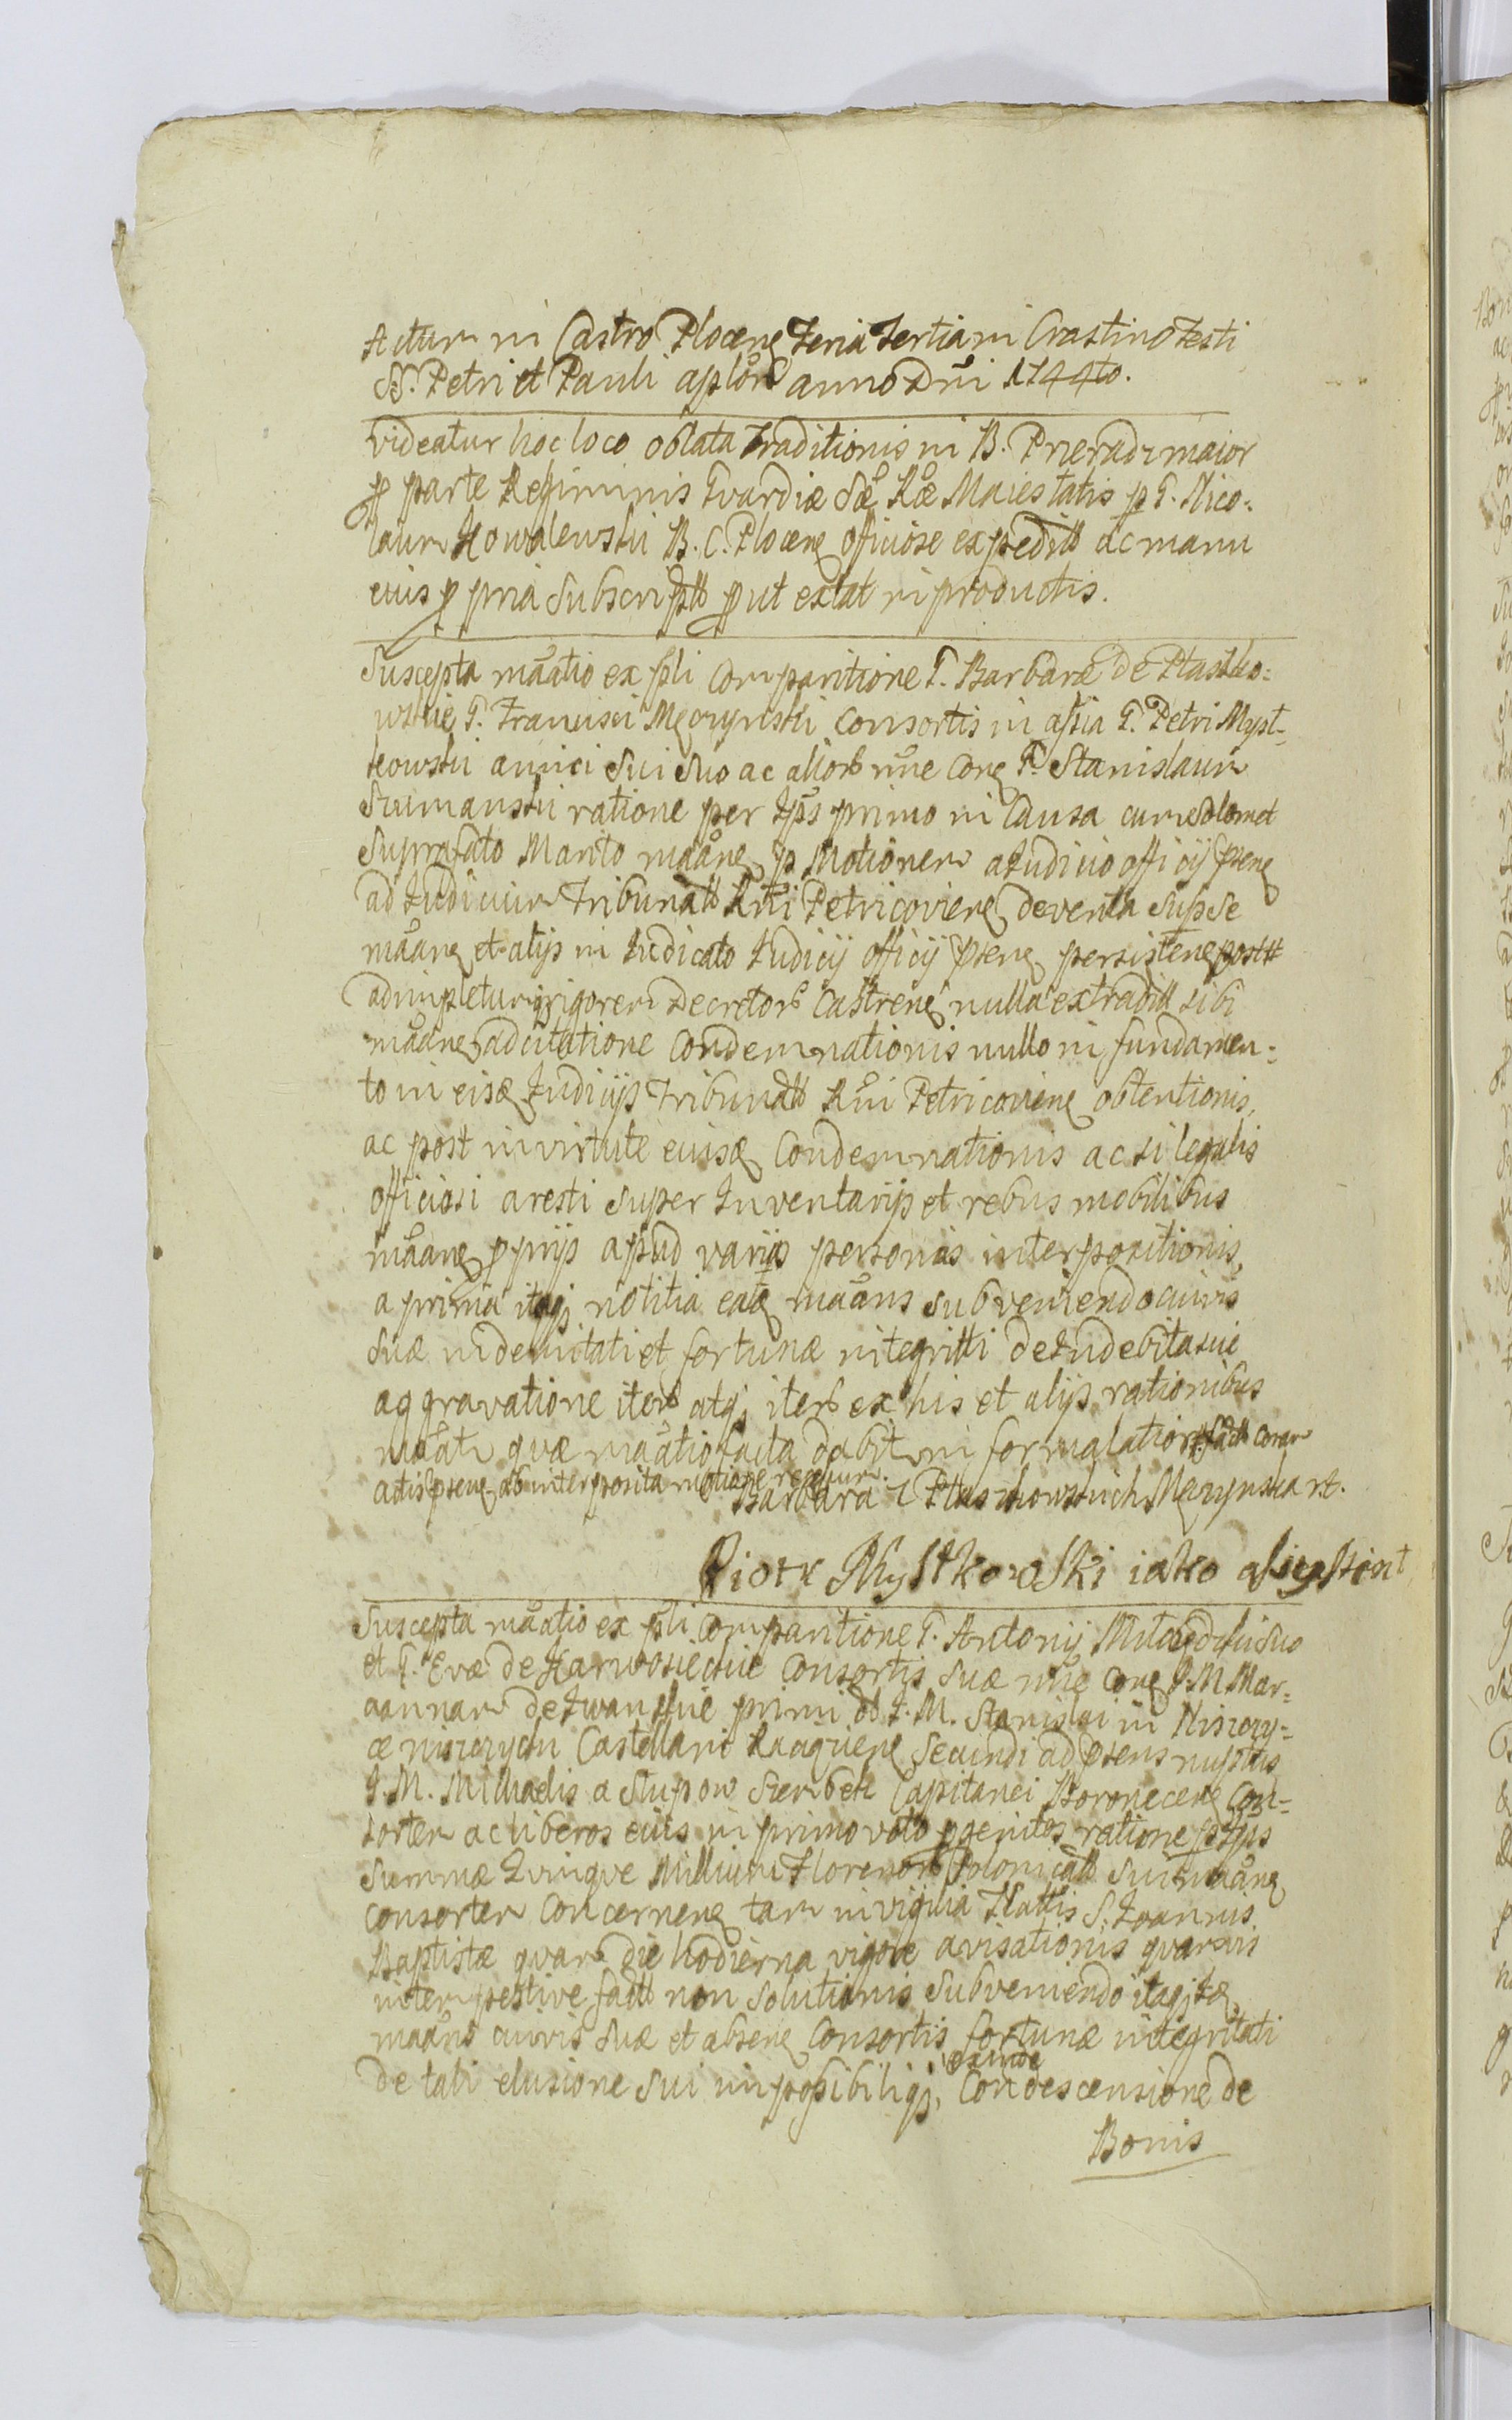 Actum in Castro Plocen Feria Tertia in Crastino Festi
SS. Petri et Pauli aplor anno Dni 1744to.
Videatur hoc loco oblata Traditionis in B. maior
p parte Regiminis Gvardiæ Sæ Ræ Maiestatis p G. Nico-
laum Kowalewski B. C. Plocen officiose expedit ac manu
eius ppria subscript put extat in productis.
Suscepta maatio ex psli comparitione G. Barbaræ de Ptasko-
wskie G. Francisci Męczynski Consortis in assia G. Petri Myst-
kowski amici sui suo ac alior nne con G. Stanislaum
Szumanski ratione per Ips primo in Causa cum
suprafato Marito maane p Motionem a Iudicio officij psen
ad Iudicium Tribunal Rni Petricovien deventa
maane et alijs in Iudicato Iudicij officij psen persisten
adimpletum rigorem Decretor Castren nulla extradit sibi
maane adcitatione Condemnationis nullo in fundamen-
to in eisd Iudicijs Tribunal Rni Petricovien obtentionis,
ac post in virtute eiusd Condemnationis ac si legalis
officiosi aresti super Inventarijs et rebus mobilibus
maane pprijs apud varias personas interpositionis,
a prima itaq notitia ead maans subveniendo
suæ indemnitati et fortunæ integritti de Indebita sui
aggravatione iter atq iter ex his et alijs rationibus
maatr quæ maatio facta coram
actis psen ab interposita
Barbara z Ptaszkowskich Męczynska rt.
Piotr Mystkowski iako
Suscepta maatio ex psli comparitione G. Antonij suo
et G. Evæ de Consortis suæ nne con J. M. Mar-
iannam de Iwanskie primi J. M. Stanislai in Nisczy-
ce Nisczycki Castellani Raciązien secundi ad psens nuptus
J. M. Michaelis a Slupow Szembek Capitanei Con-
sortem ac liberos eius in primo voto pgenitos ratione p Ips
summæ Qvinqve Millium Florenor Polonical sui maane
consortem Concernen tam in vigilia Natlis S. Joannis
Baptistæ qvam die hodierna vigore avisationis qvamvis
intempestive fact non solutionis subveniendo itaq Id
maans suæ et absen Consortis fortunæ integritati
de tali elusione sui impossibiliq, exinde Condescensione de
Bonis